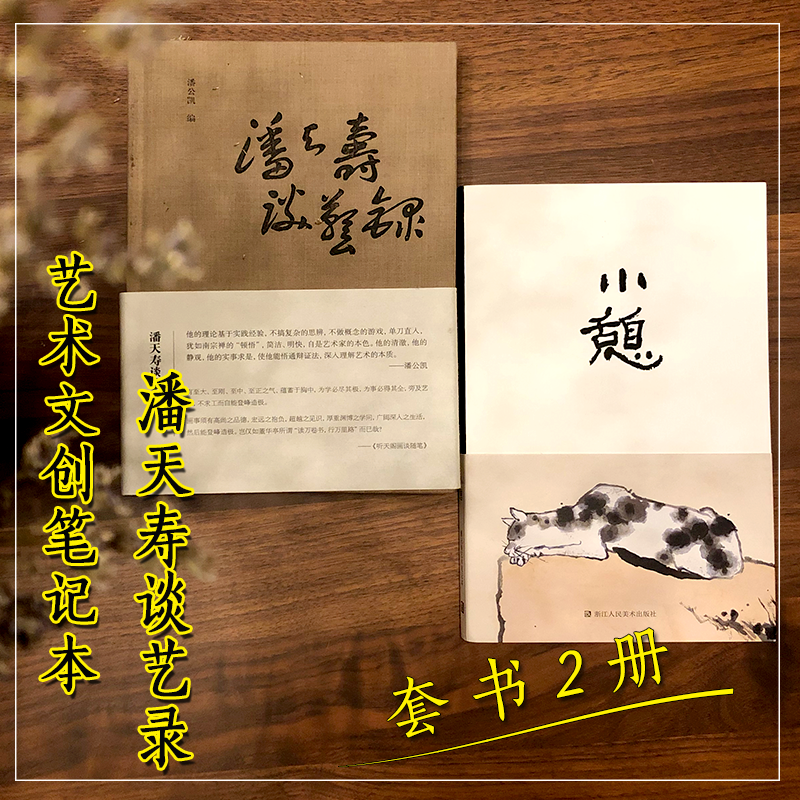 潘公凯 编
潘天壽
談藝錄
潘天寿谈
他的理论基于实践经验，不搞复杂的思辨，不做概念的游戏，单刀直入，
犹如南宗禅的“顿悟”，简洁、明快，自是艺术家的本色。他的清澈，他的
静观，他的实事求是，使他能悟通辩证法，深入理解艺术的本质。
——潘公凯
至大、至刚、至中、至正之气，蕴蓄于胸中，为学必尽其极，为事必得其全，旁及艺
不求工而自能登峰造极。
画事须有高尚之品德，宏远之抱负，超越之见识，厚重渊博之学问，广阔深入之生活，
然后能登峰造极。岂仅如董华亭所谓“读万卷书，行万里路”而已哉？
——《听天阁画谈随笔》
小憩
浙江人民美术出版社
艺术文创笔记本
潘天寿谈艺录
套书2册